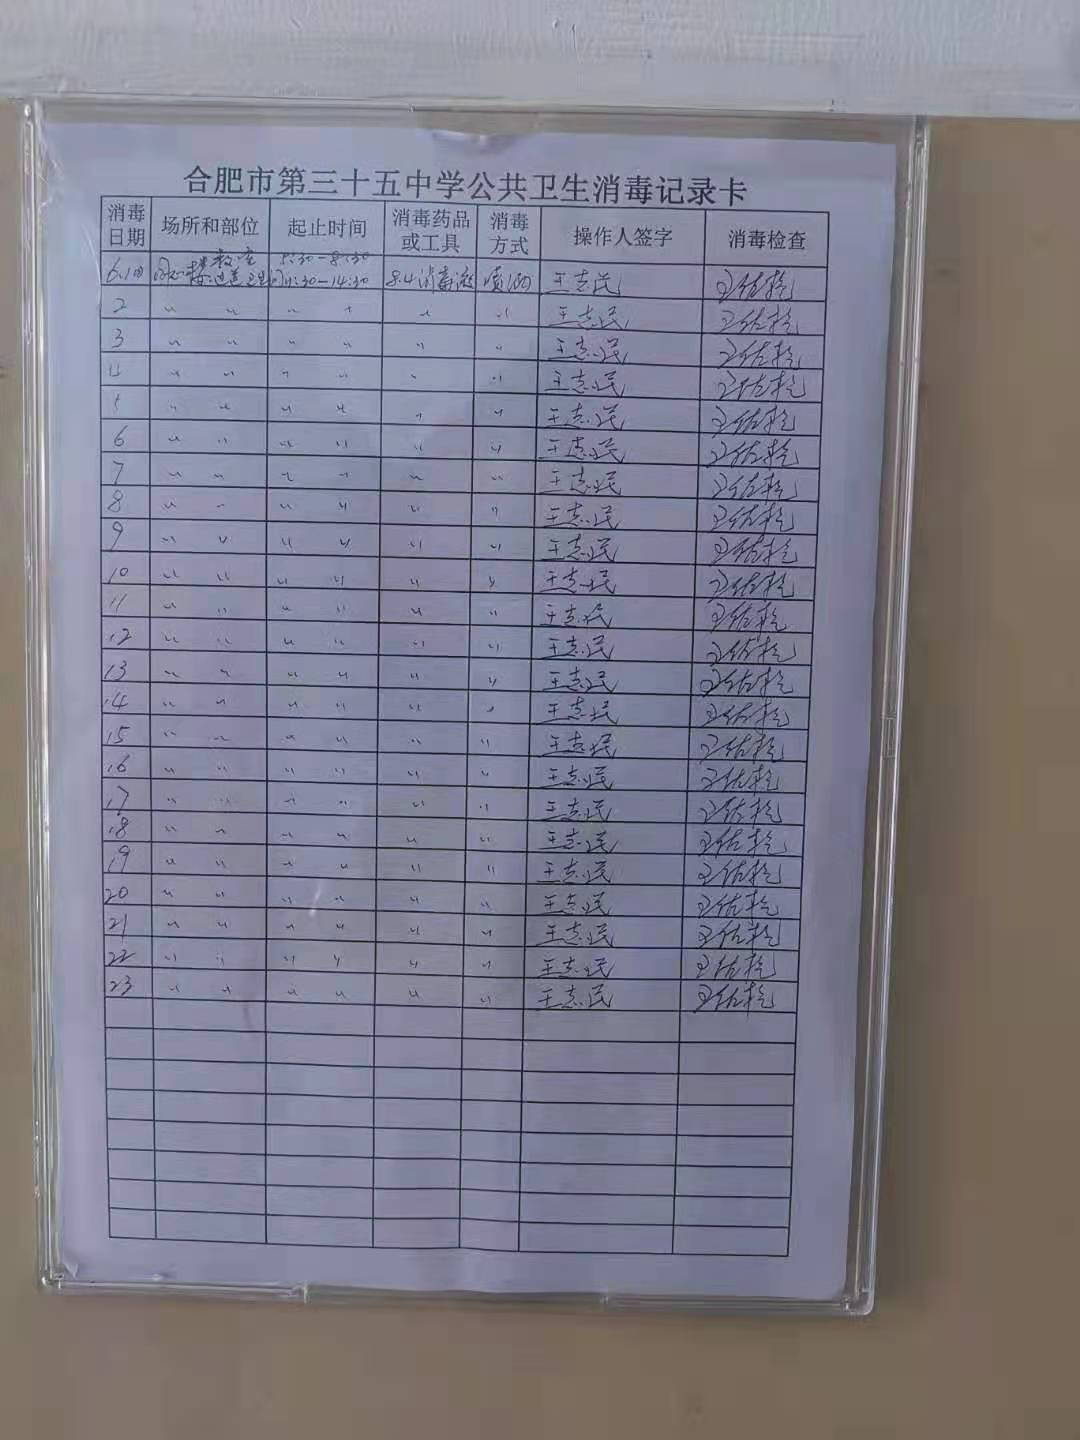 合肥市第三十五中学公共卫生消毒记录卡
消毒日期 场所和部位 起止时间 消毒药品或工具 消毒方式 操作人签字 消毒检查
6.1日 同心楼教室过道卫生间 5:30-8:30 11:30-14:30 84消毒液 喷洒 王志民
2 〃 〃 〃 〃 〃 〃 王志民
3 〃 〃 〃 〃 〃 〃 王志民
4 〃 〃 〃 〃 〃 〃 王志民
5 〃 〃 〃 〃 〃 〃 王志民
6 〃 〃 〃 〃 〃 〃 王志民
7 〃 〃 〃 〃 〃 〃 王志民
8 〃 〃 〃 〃 〃 〃 王志民
9 〃 〃 〃 〃 〃 〃 王志民
10 〃 〃 〃 〃 〃 〃 王志民
11 〃 〃 〃 〃 〃 〃 王志民
12 〃 〃 〃 〃 〃 〃 王志民
13 〃 〃 〃 〃 〃 〃 王志民
14 〃 〃 〃 〃 〃 〃 王志民
15 〃 〃 〃 〃 〃 〃 王志民
16 〃 〃 〃 〃 〃 〃 王志民
17 〃 〃 〃 〃 〃 〃 王志民
18 〃 〃 〃 〃 〃 〃 王志民
19 〃 〃 〃 〃 〃 〃 王志民
20 〃 〃 〃 〃 〃 〃 王志民
21 〃 〃 〃 〃 〃 〃 王志民
22 〃 〃 〃 〃 〃 〃 王志民
23 〃 〃 〃 〃 〃 〃 王志民